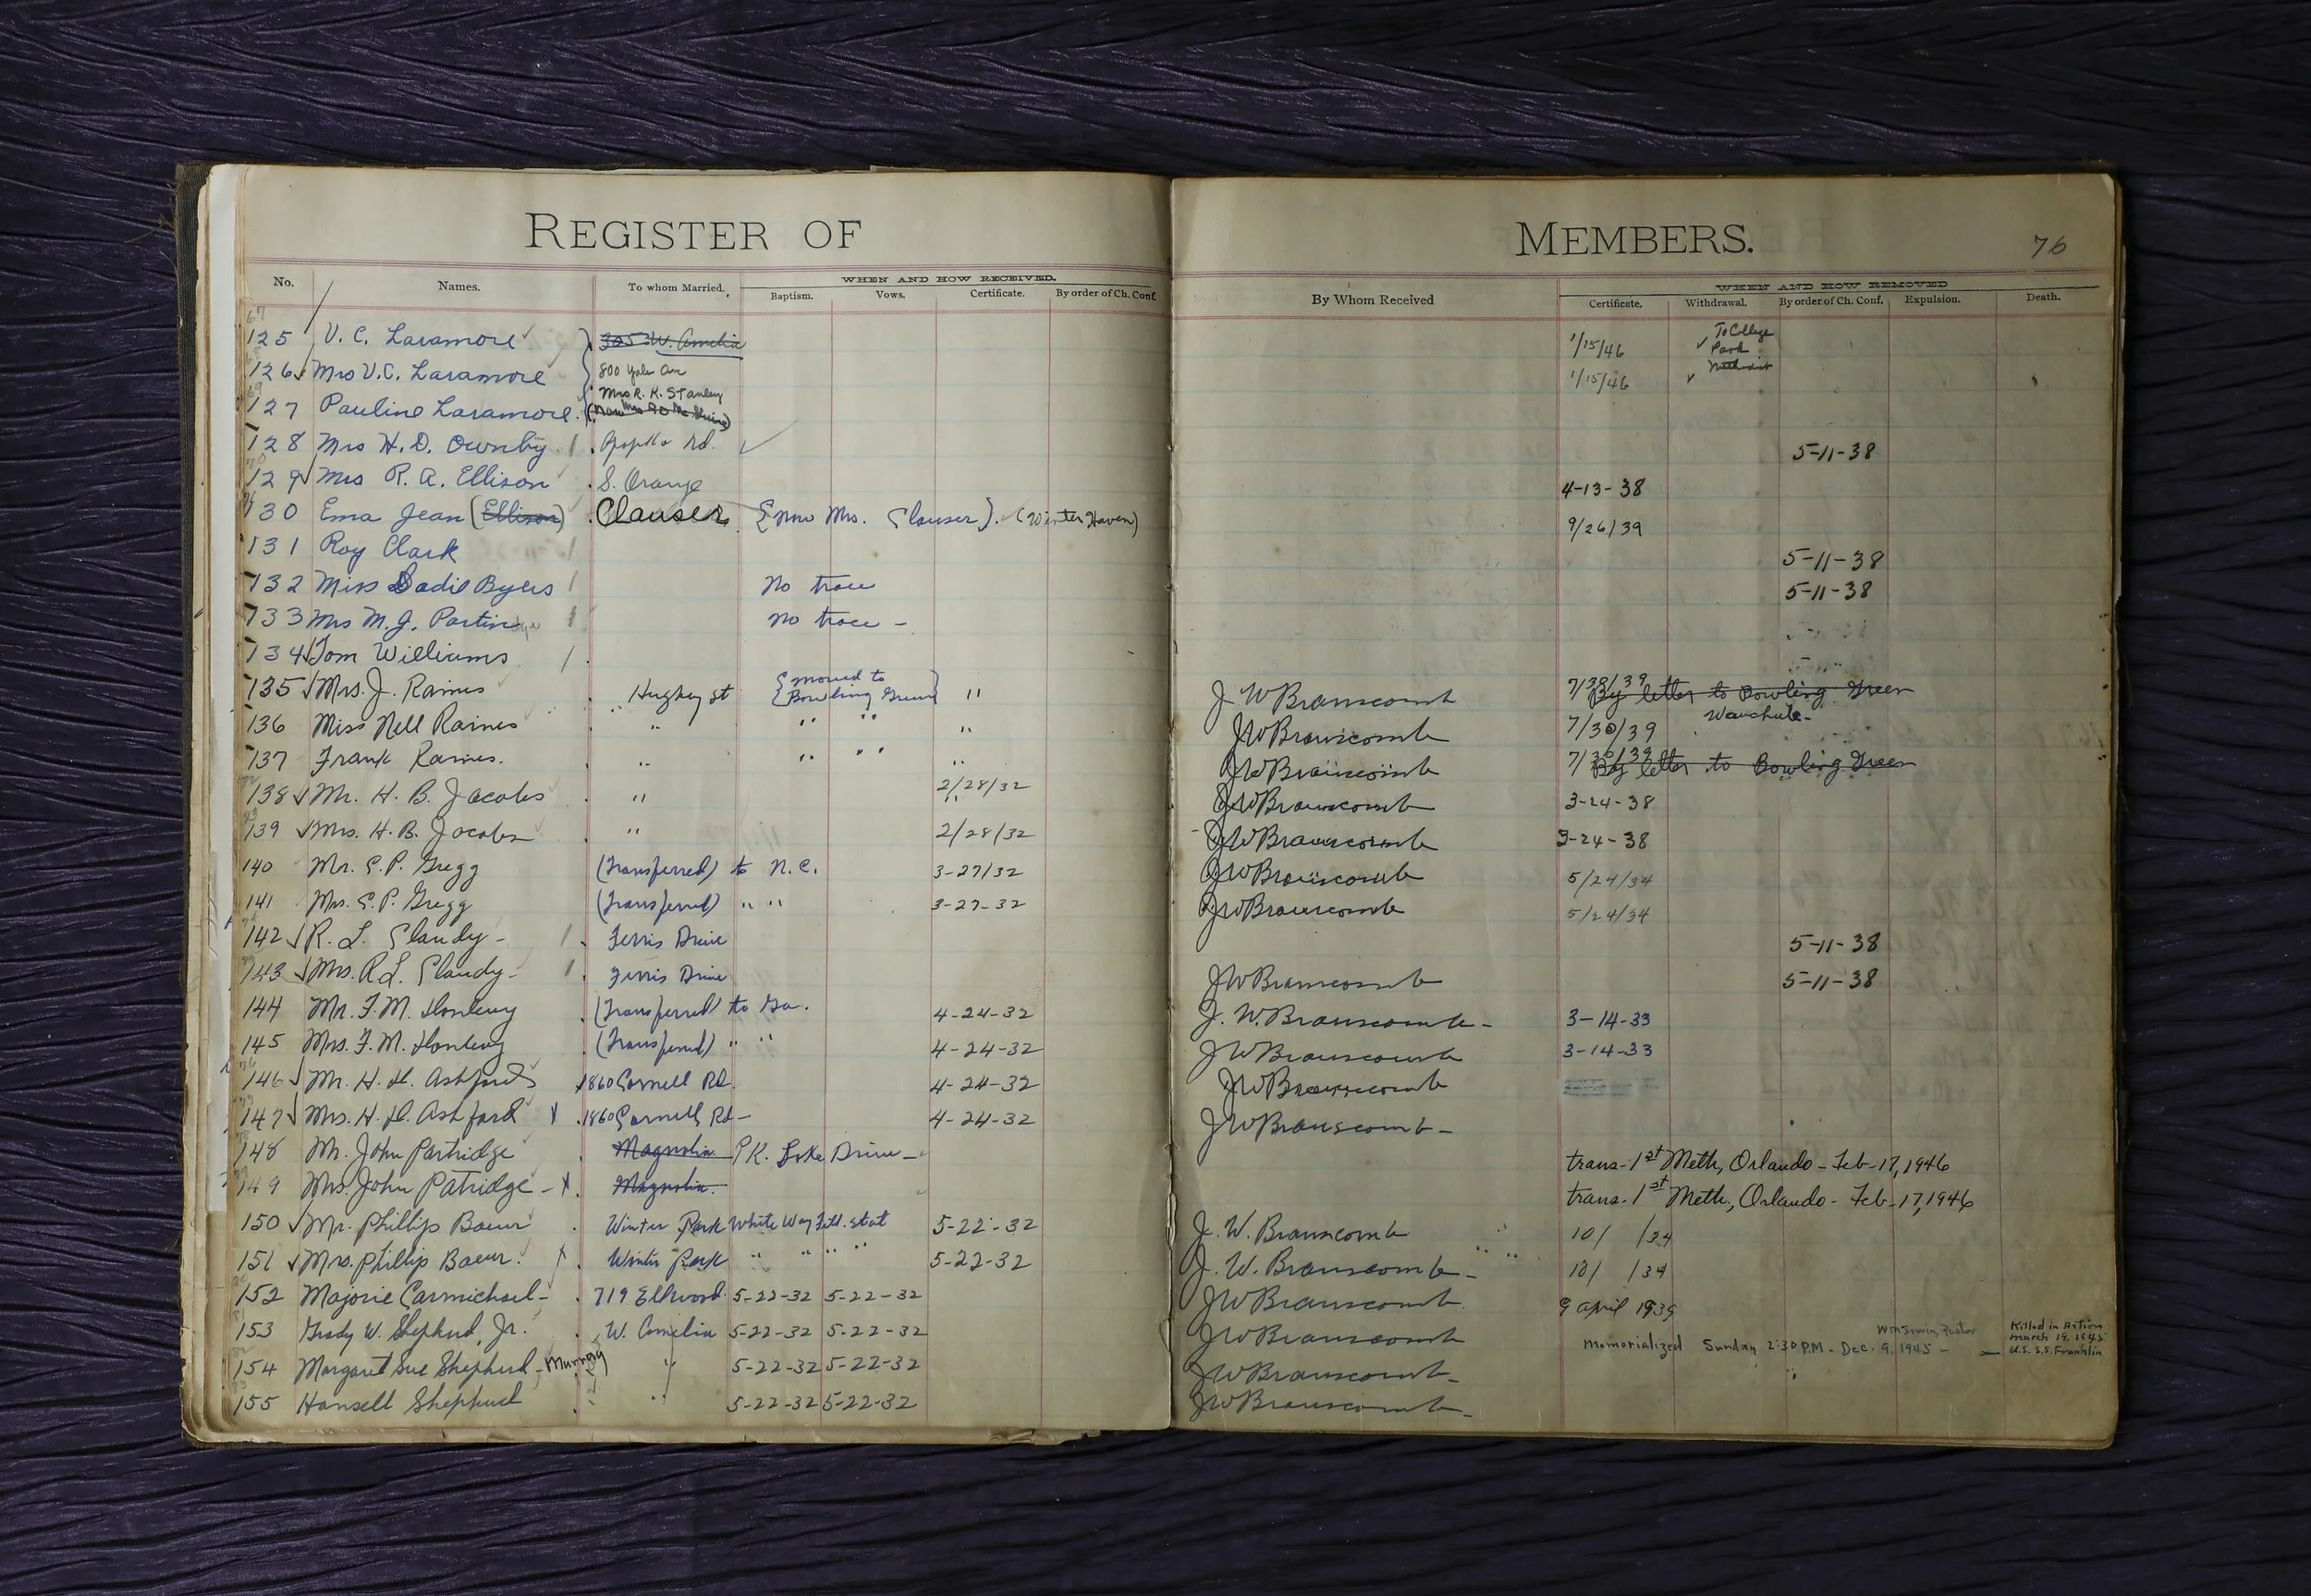 REGISTER OF MEMBERS. 76
No. Names. To whom Married. WHEN AND HOW RECEIVED. Baptism. Vows. Certificate. By order of Ch. Conf. By Whom Received WHEN AND HOW REMOVED Certificate. Withdrawal. By order of Ch. Conf. Expulsion. Death.
67
125 V. C. Laramore 305 W. Amelia 1/15/46 ✓ To College Park Methodist
126 ✓ Mrs V.C. Laramore 800 Yale Ave 1/15/46 ✓
127 Pauline Laramore Mrs. R. K. Stanley
128 Mrs H. D. Ownby Rd. ✓ 5-11-38
129 ✓ Mrs R. A. Ellison S. Orange 4-13-38
130 Ema Jean (Ellison) Clauser {now Mrs. Clauser}. (Winter Haven) 9/26/39
131 Roy Clark 5-11-38
132 Miss Sadie Byers No trace 5-11-38
133 Mrs M. J. No trace -
134 ✓ Tom Williams
135 ✓ Mrs. J. Raines Hughey St {moved to Bowling Green} " J W Branscomb 7/30/39 By letter to Bowling Green
136 Miss Nell Raines " " " " J W Branscomb 7/30/39 Wauchula-
137 Frank Raines. " " " " J W Branscomb 7/30/39 By letter to Bowling Green
138 ✓ Mr. H. B. Jacobs " 2/28/32 J W Branscomb 3-24-38
139 ✓ Mrs. H. B. Jacobs " 2/28/32 J W Branscomb 3-24-38
140 Mr. C. P. Gregg (Transferred) to N.C. 3-27/32 J W Branscomb 5/24/34
141 Mrs. C. P. Gregg (Transferred) " " 3-27-32 J W Branscomb 5/24/34
142 ✓ R. L. Clandy - Ferris Drive 5-11-38
143 ✓ Mrs. R L. Clandy - Ferris Drive J W Branscomb 5-11-38
144 Mr. F. M. (Transferred) to Ga. 4-24-32 J. W. Branscomb - 3-14-33
145 Mrs. F. M. (Transferred) " " 4-24-32 J W Branscomb 3-14-33
146 ✓ Mr. H. H. Ashford 1860 Cornell Rd. 4-24-32 J W Branscomb
147 ✓ Mrs. H. H. Ashford x 1860 Cornell Rd - 4-24-32 J W Branscomb -
148 Mr. John Partridge Magnolia PK. Lake Drive - trans. 1st Meth, Orlando - Feb-17, 1946
149 Mrs. John Patridge - x Magnolia. trans. 1st Meth., Orlando - Feb. 17, 1946
150 ✓ Mr. Phillip Baeur Winter Park White Way Fill. Stat 5-22-32 J. W. Branscomb 10/ /34
151 ✓ Mrs. Phillip Baeur. x Winter Park " " " " 5-22-32 J. W. Branscomb - 10/ /34
152 Majorie Carmichael - 719 Ellwood 5-22-32 5-22-32 J W Branscomb 9 April 1939
153 Grady W. Shepherd, Jr. W. Amelia 5-22-32 5-22-32 J W Branscomb Memorialized Sunday 2:30 P.M. - Dec. 9, 1945 - Wm Irwin, Pastor - Killed in Action March 19, 1945 U.S.S. Franklin
154 Margaret Sue Shepherd - Murray " 5-22-32 5-22-32 J W Branscomb -
155 Hansell Shepherd " 5-22-32 5-22-32 J W Branscomb -